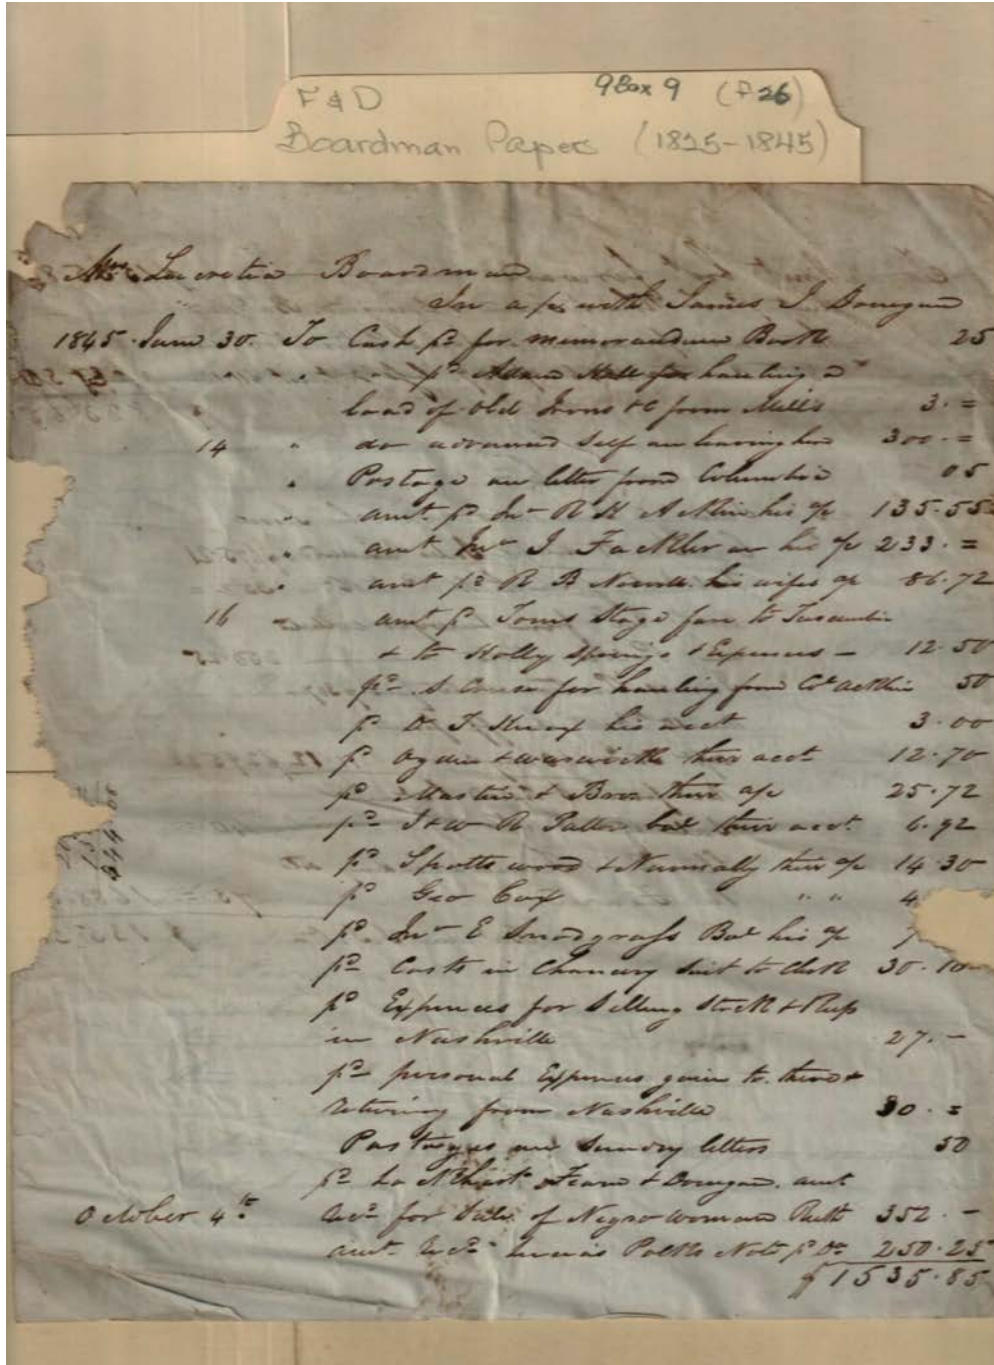 F & D 9 Box 9 (f 26)
Boardman Papers (1825-1845)
Mrs Lucretia Boardman
In a/c with James J Donegan
1845 June 30. To Cash pd for memorandum Book 25
" pd Adam Hall for hauling a
load of Old Irons &c from Mills 3.=
14 " do advanced Self on leaving here 300.=
" Postage on letter from Columbia 05
amt. pd Jno R H Acklin his a/c 135.55
" amt Jno J Fackler on his a/c 233.=
" amt pd R B his wifes a/c 86.72
16 " amt pd Toms Stage fare to Tuscumbia
& to Holly Springs & Expences — 12.50
pd S Cruse for hauling from Col Acklin 50
pd his acct 3.00
pd their acct 12.70
pd Mastin & Bro their a/c 25.72
pd J & W R Patton bal their acct. 6.92
pd Spotts wood & Nunnally their a/c 14.30
pd Geo Cox " " 4
pd Jno E Snodgrass Bal his a/c 7
pd Costs in Chancery Suit to Clerk 30.10
pd Expences for Selling Stock &
in Nashville 27.—
pd personal Expences goin to there &
returning from Nashville 30.=
Postages on Sundry letters 50
pd Fearn & Donegan. amt
October 4th. recd for Sale of Negro woman Ruth 352.—
amt. Polks Note pr Do 250.25
$1535.85